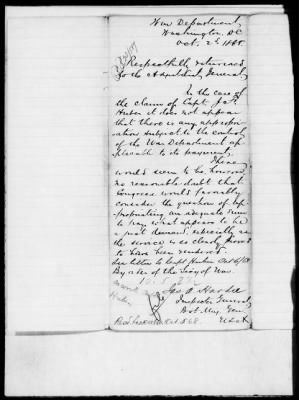 War Department,
Washington, D.C.
Oct. 2d 1868.
Respectfully returned
to the Adjutant General
In the case of
the claim of Capt. Jas.
it does not appear
that there is any appropri-
ation subject to the control
of the War Department ap-
plicable to its payment.
There
would seem to be, however,
no reasonable doubt that
Congress would favorably
consider the question of ap-
propriating an adequate sum
to pay what appears to be
a just demand, especially as
the service was clearly proved
to have been rendered.
See letter to Capt
By order of the Secy of War.
Jas. A. Hardie
Inspector General,
Bvt. Maj. Gen.
U.S.A.